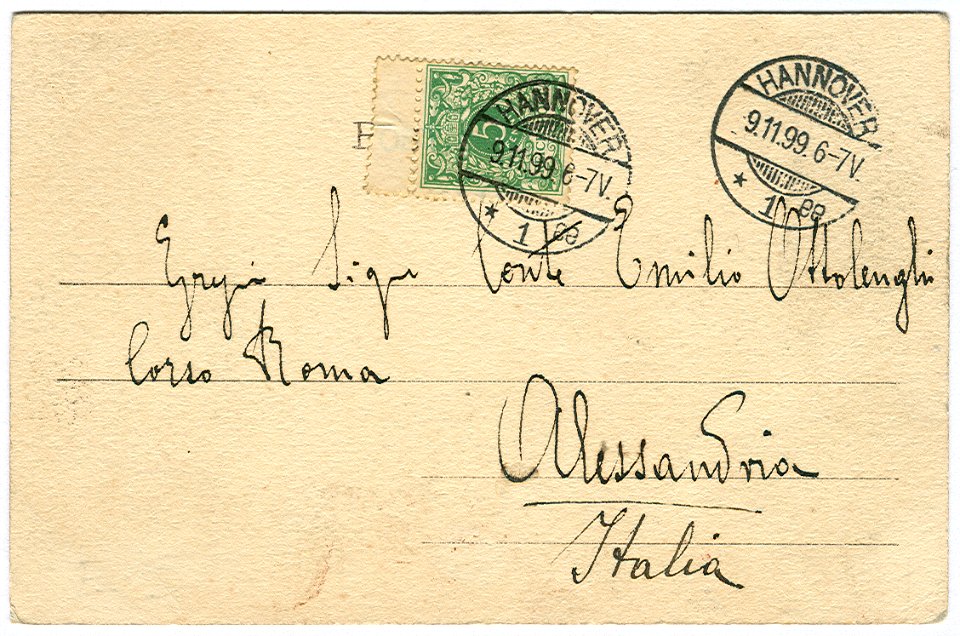 HANNOVER
9.11.99. 6-7V.
* 1 ee
HANNOVER
9.11.99. 6-7V.
* 1 ee
5
P
Egrgio Sigr Conte Emilio Ottolenghi
Corso Roma
Alessandria
Italia